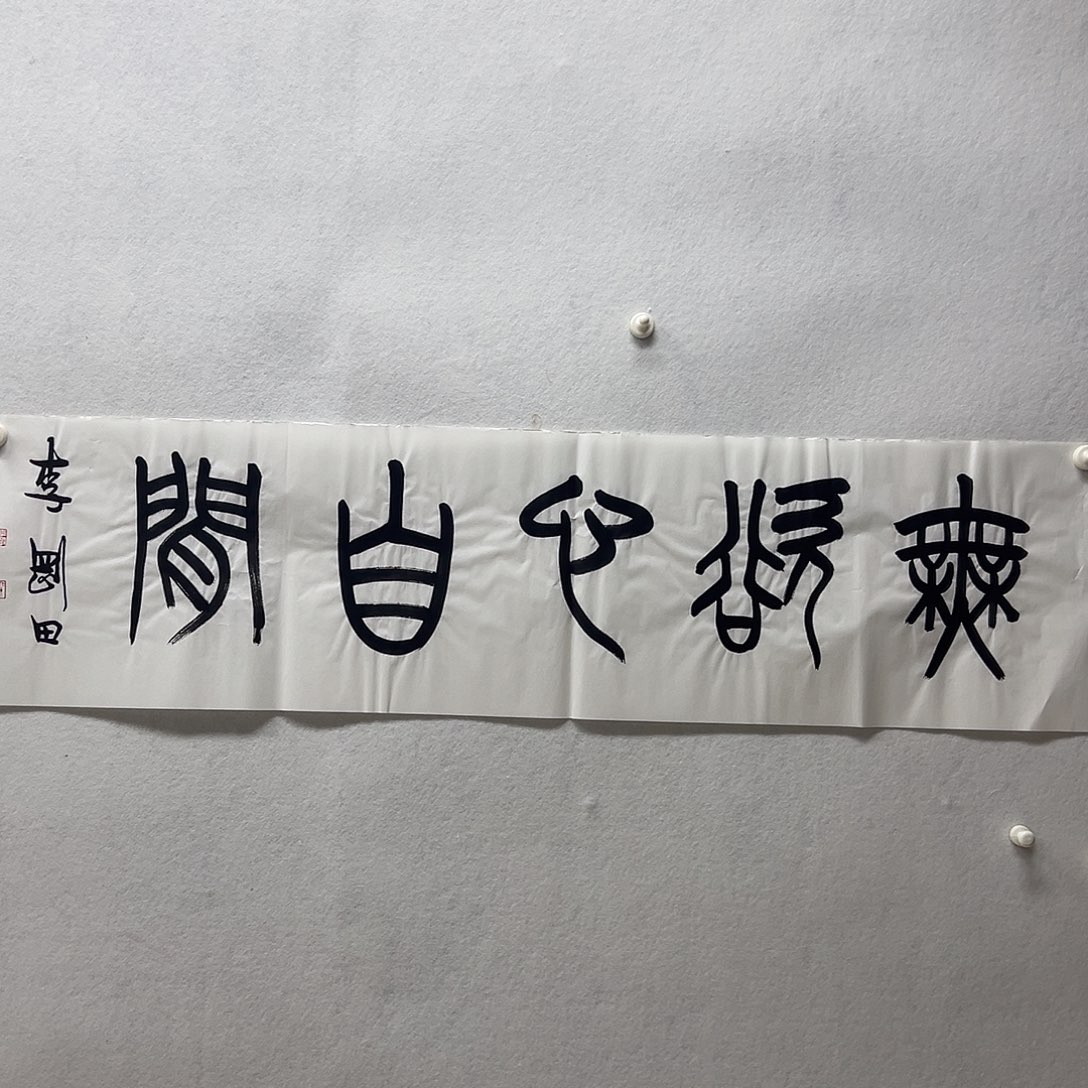 無欲心自閒
李剛田